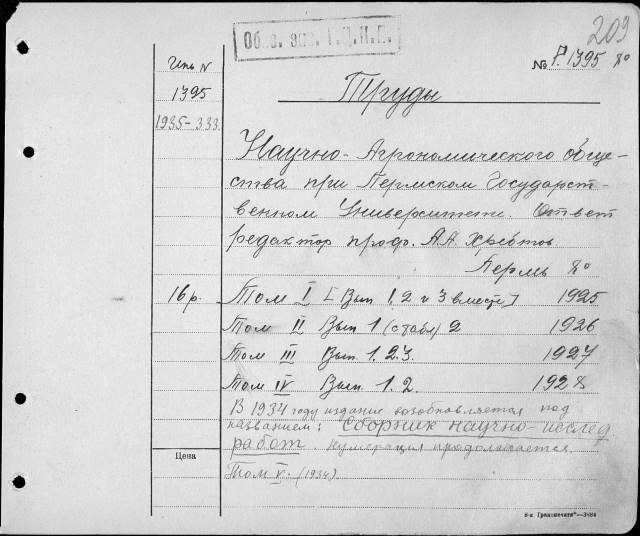 209
Обяз. экз. Г.Ц.К.П.
№ Р.1395 8°
Инв N
1395
1935-333
Труды
Научно-Агрономического обще-
ства при Пермском Государст-
венном Университете. Ответ
редактор проф. А.А. Хребтов.
Пермь 8°
16 р. Том I [Вып 1, 2 и 3 вместе] 1925
Том II Вып 1 (с табл) 2 1926
Том III Вып. 1. 2. 3. 1927
Том IV Вып. 1. 2. 1928
В 1934 году издание возобновляется под
названием: Сборник научно-исслед
работ. нумерация продолжается.
Цена
Том V. (1934)
8-я „Гранпечати“—3484